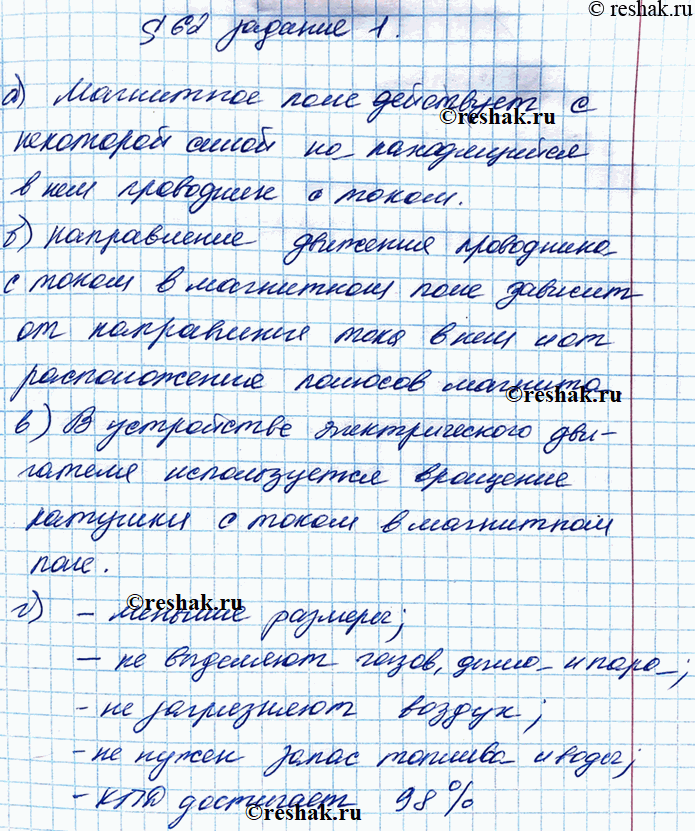 © reshak.ru
§ 62 задание 1.
а) Магнитное поле действует с
©reshak.ru
некоторой силой на находящийся
в нем проводник с током.
б) Направление движения проводника
с током в магнитном поле зависит
от направления тока в нем и от
расположения полюсов магнита
©reshak.ru
в) В устройстве электрического дви-
гателя используется вращение
катушки с током в магнитном
поле.
©reshak.ru
г) - меньшие размеры;
- не выделяют газов, дыма и пара;
- не загрязняют воздух;
- не нужен запас топлива и воды;
- КПД достигает 98%
©reshak.ru